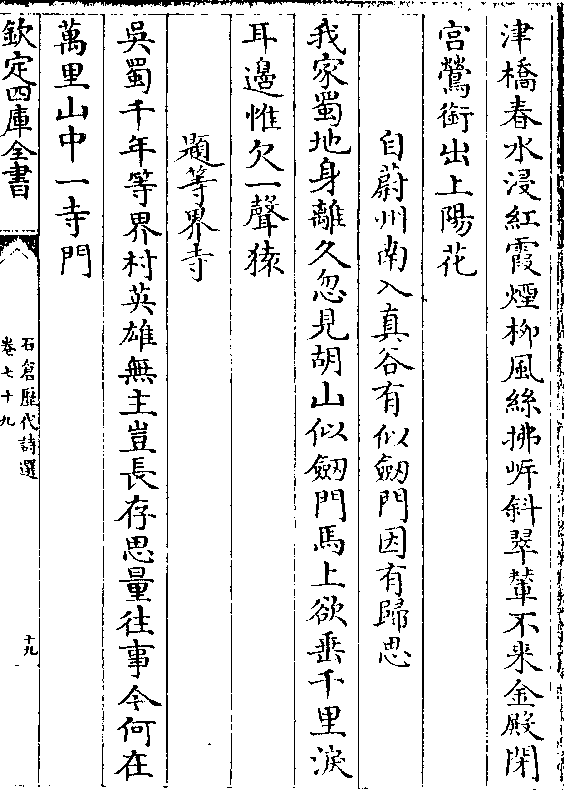 津橋春水浸紅霞煙柳風絲拂岸斜翠輦不来金殿閉
宮鶯銜出上陽花
自蔚州南入真谷有似劒門因有歸思
我家蜀地身離久忽見胡山似劒門馬上欲垂千里淚
耳邉惟欠一聲猿
題等界寺
吳蜀千年等界村英雄無主豈長存思量往事今何在
萬里山中一寺門
欽定四庫全書
石倉歷代詩選
卷七十九
十九